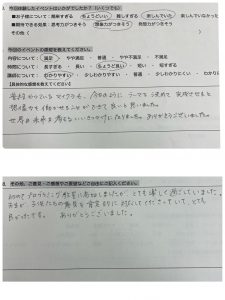 今回体験したイベントはいかがでしたか？(いくつでも)
■お子様について: 簡単すぎる ちょうどいい 難しすぎる 楽しんでいた 楽しんでいなかった
■期待できる効果: 思考力がつきそう 想像力がつきそう 発想力がつきそう
その他(
今回のイベントの感想を教えてください。
内容について: 満足 やや満足 普通 やや不満 不満
時間について: 長すぎる 長い ちょうど良い 短い 短すぎる
講師について: わかりやすい 少しわかりやすい 普通 少しわかりにくい わかり
【具体的な感想を教えてください】
普段やっているマイクラも、今日のように テーマを決めて 実際させると
想像力を働かせることができて 良いと思いました。
世界の未来を考えるいいきっかけになりました。ありがとうございました。
8. その他、ご意見・ご感想やご要望などご自由にご記入ください。
初めてプログラミング教室に参加しましたが、とても楽しく過ごしていました。
先生が 子供たちの意見を肯定的に 対応してくださっていて、とても
良かったです。 ありがとうございました。